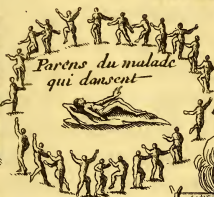 Parens du malade
qui dansent